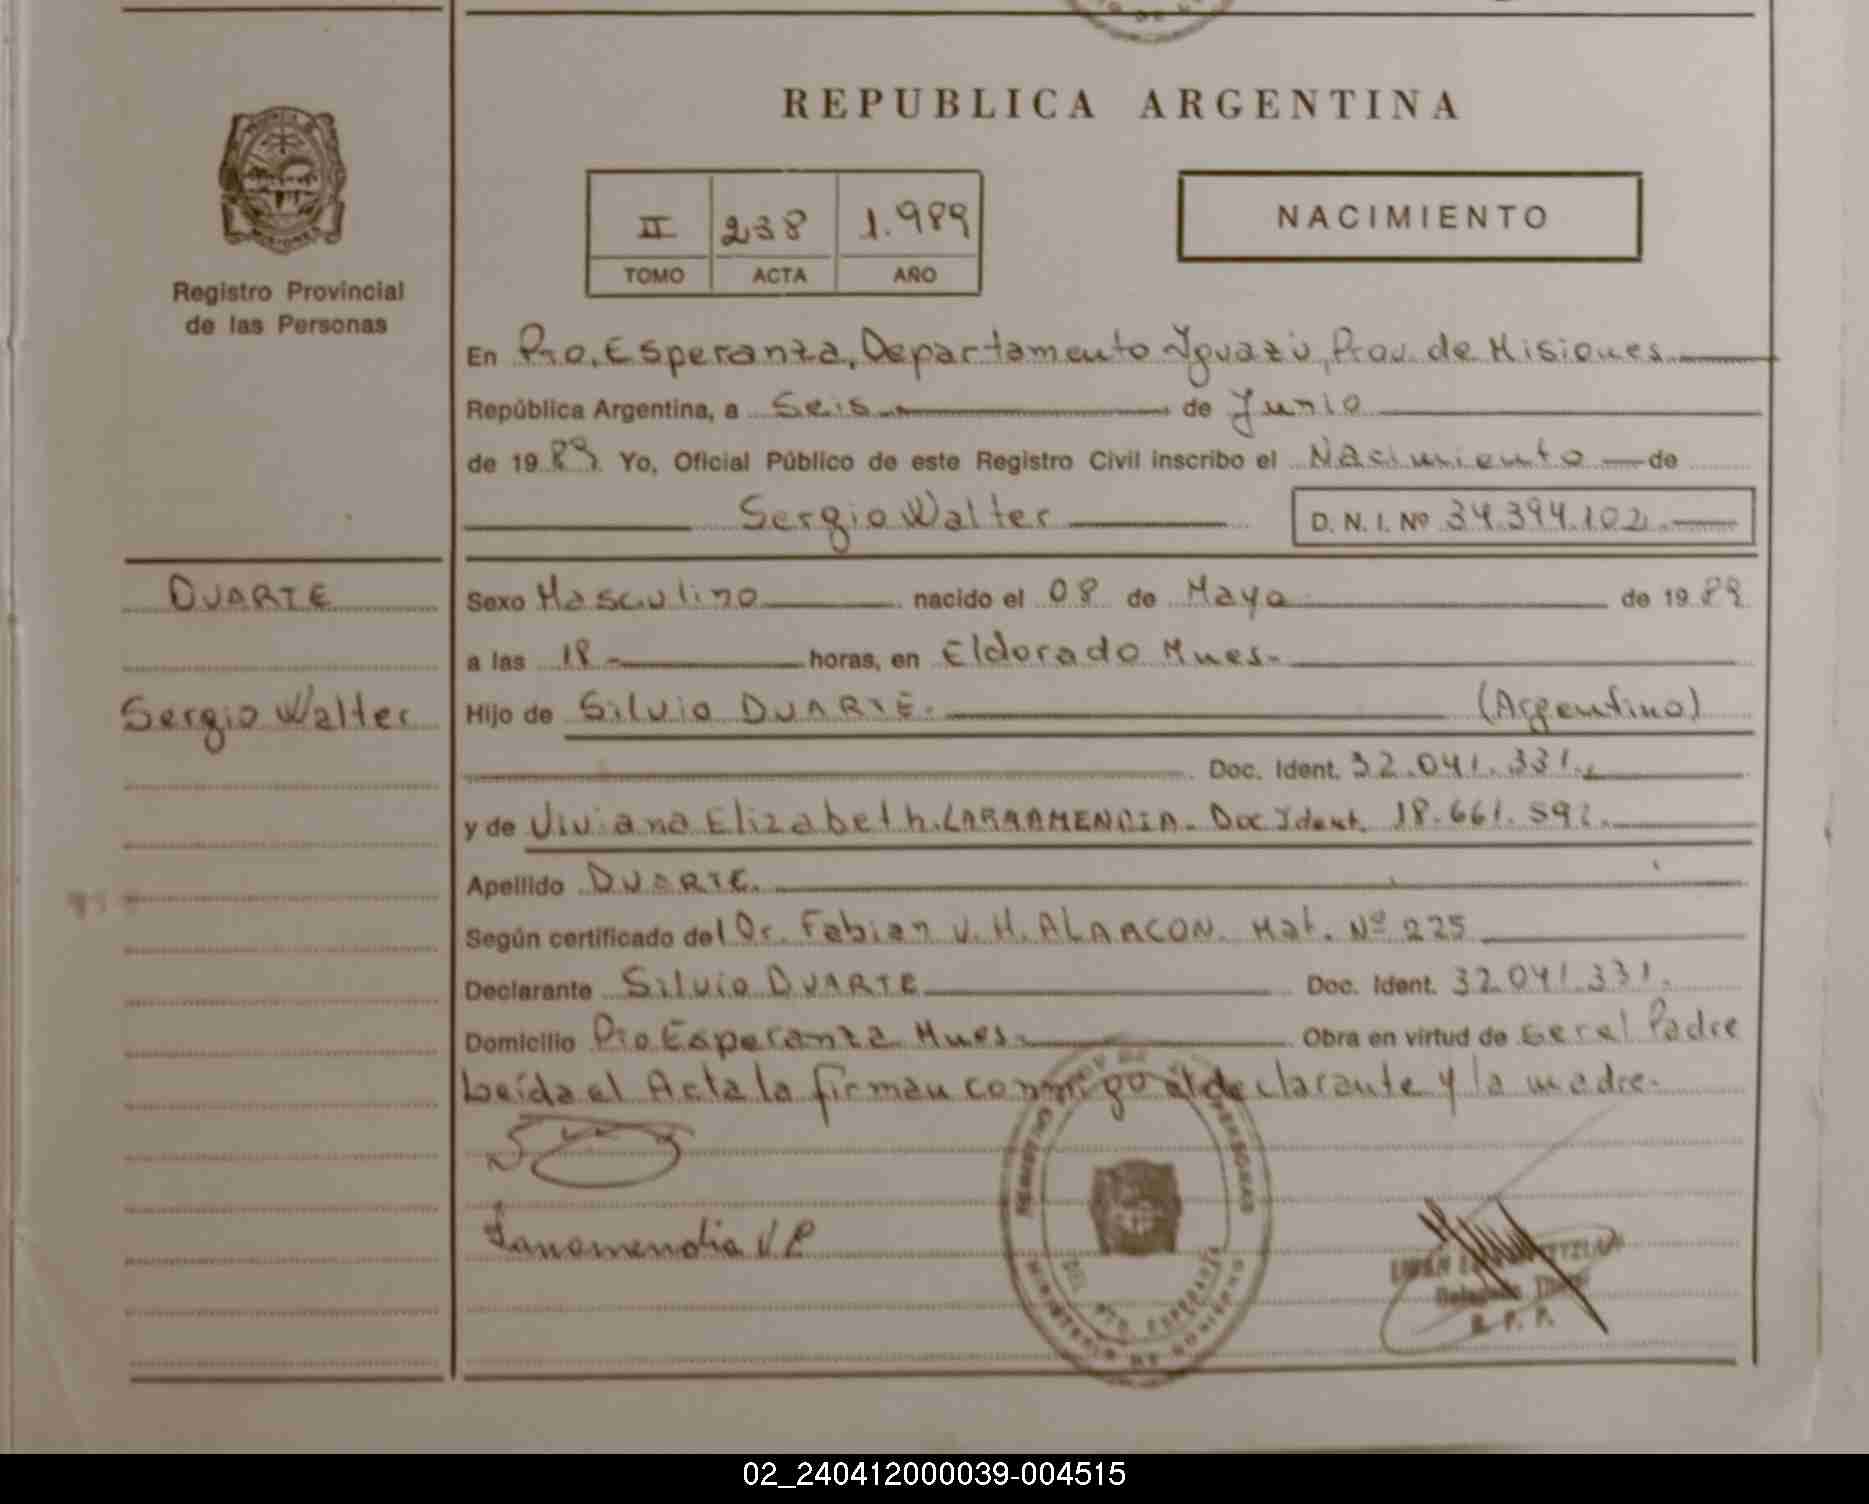 REPUBLICA ARGENTINA
MISIONES
Registro Provincial
de las Personas
II 238 1.989
TOMO ACTA AÑO
NACIMIENTO
En Pto. Esperanza, Departamento Iguazú, Prov. de Misiones
República Argentina, a Seis de Junio
de 1989 Yo, Oficial Público de este Registro Civil inscribo el Nacimiento de
Sergio Walter D. N. I. Nº 34.394.102
DUARTE
Sexo Masculino nacido el 08 de Mayo de 1989
a las 18 horas, en Eldorado Mnes.
Sergio Walter
Hijo de Silvio DUARTE. (Argentino)
Doc. Ident. 32.041.331.
y de Viviana Elizabeth LARRAMENDIA. Doc Ident. 18.661.592.
Apellido DUARTE.
Según certificado del Dr. Fabian V. H. ALARCON. Mat. Nº 225
Declarante Silvio DUARTE Doc. Ident. 32.041.331.
Domicilio Pto Esperanza Mnes. Obra en virtud de Ser el Padre
Leída el Acta la firman conmigo el declarante y la madre.
REGISTRO DE LAS PERSONAS
DEL PTO. ESPERANZA
MINISTERIO DE GOBIERNO
R. P. P.
02_240412000039-004515